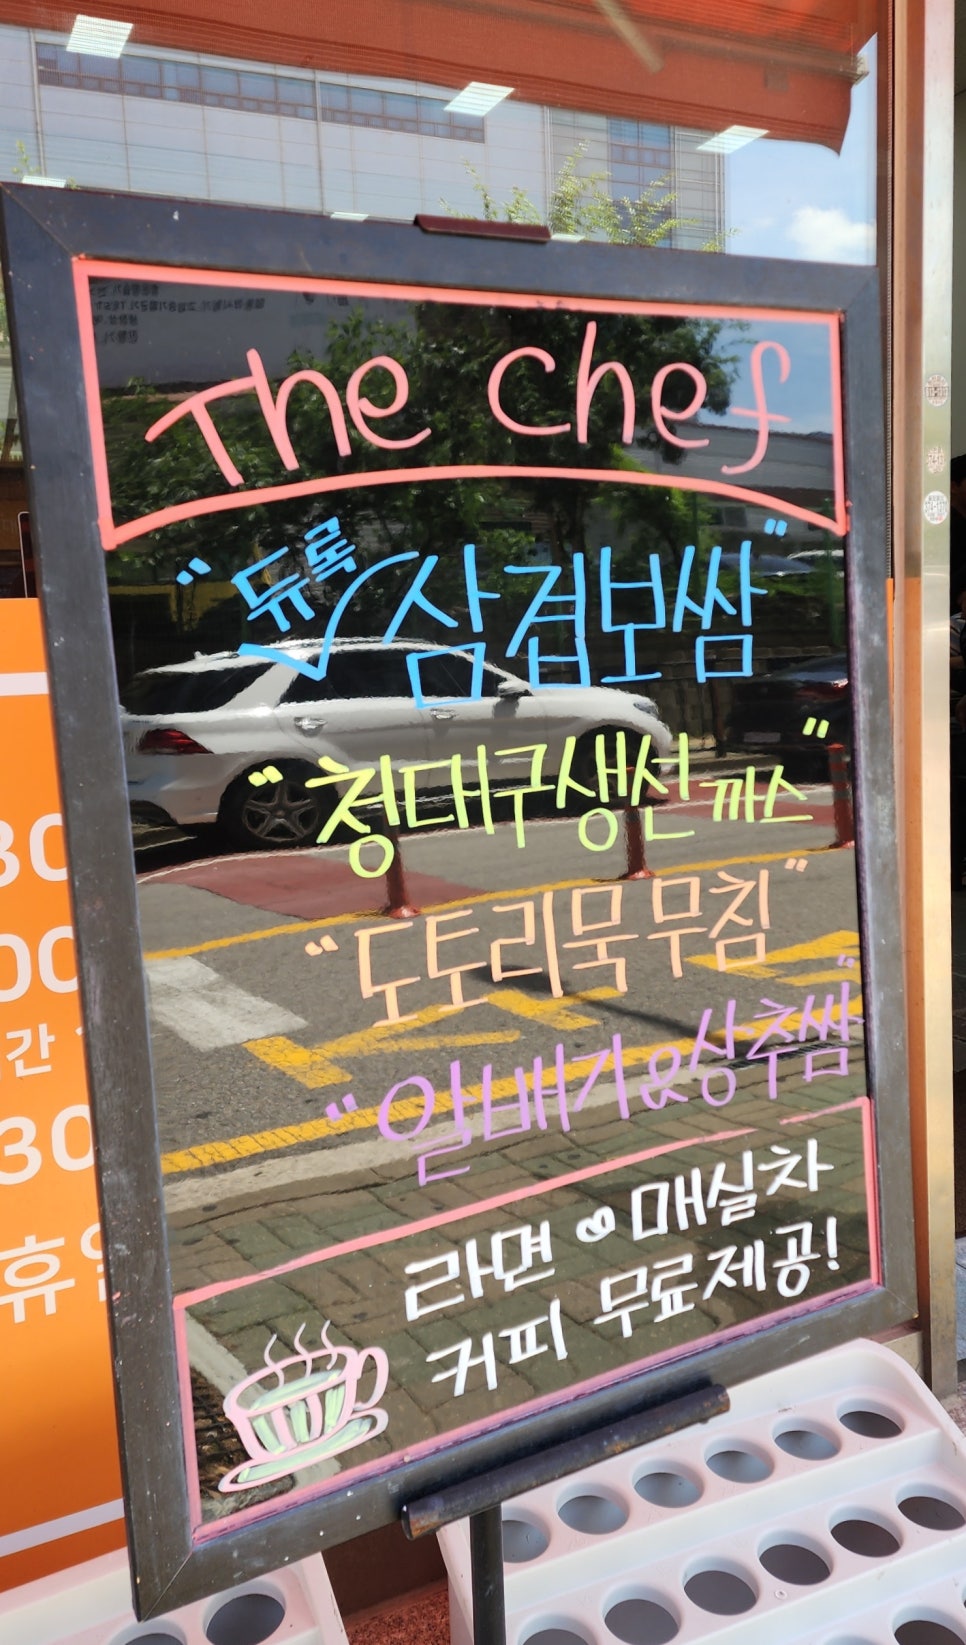 The chef
"듀록 삼겹보쌈"
"청대구생선까스"
"도토리묵무침"
"알배기&상추쌈"
라면 & 매실차
커피 무료제공!
30
00
간
30
휴일